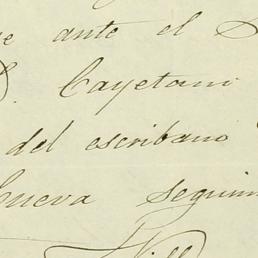 e ante el
Cayetano
del escribano
Cueva seguim